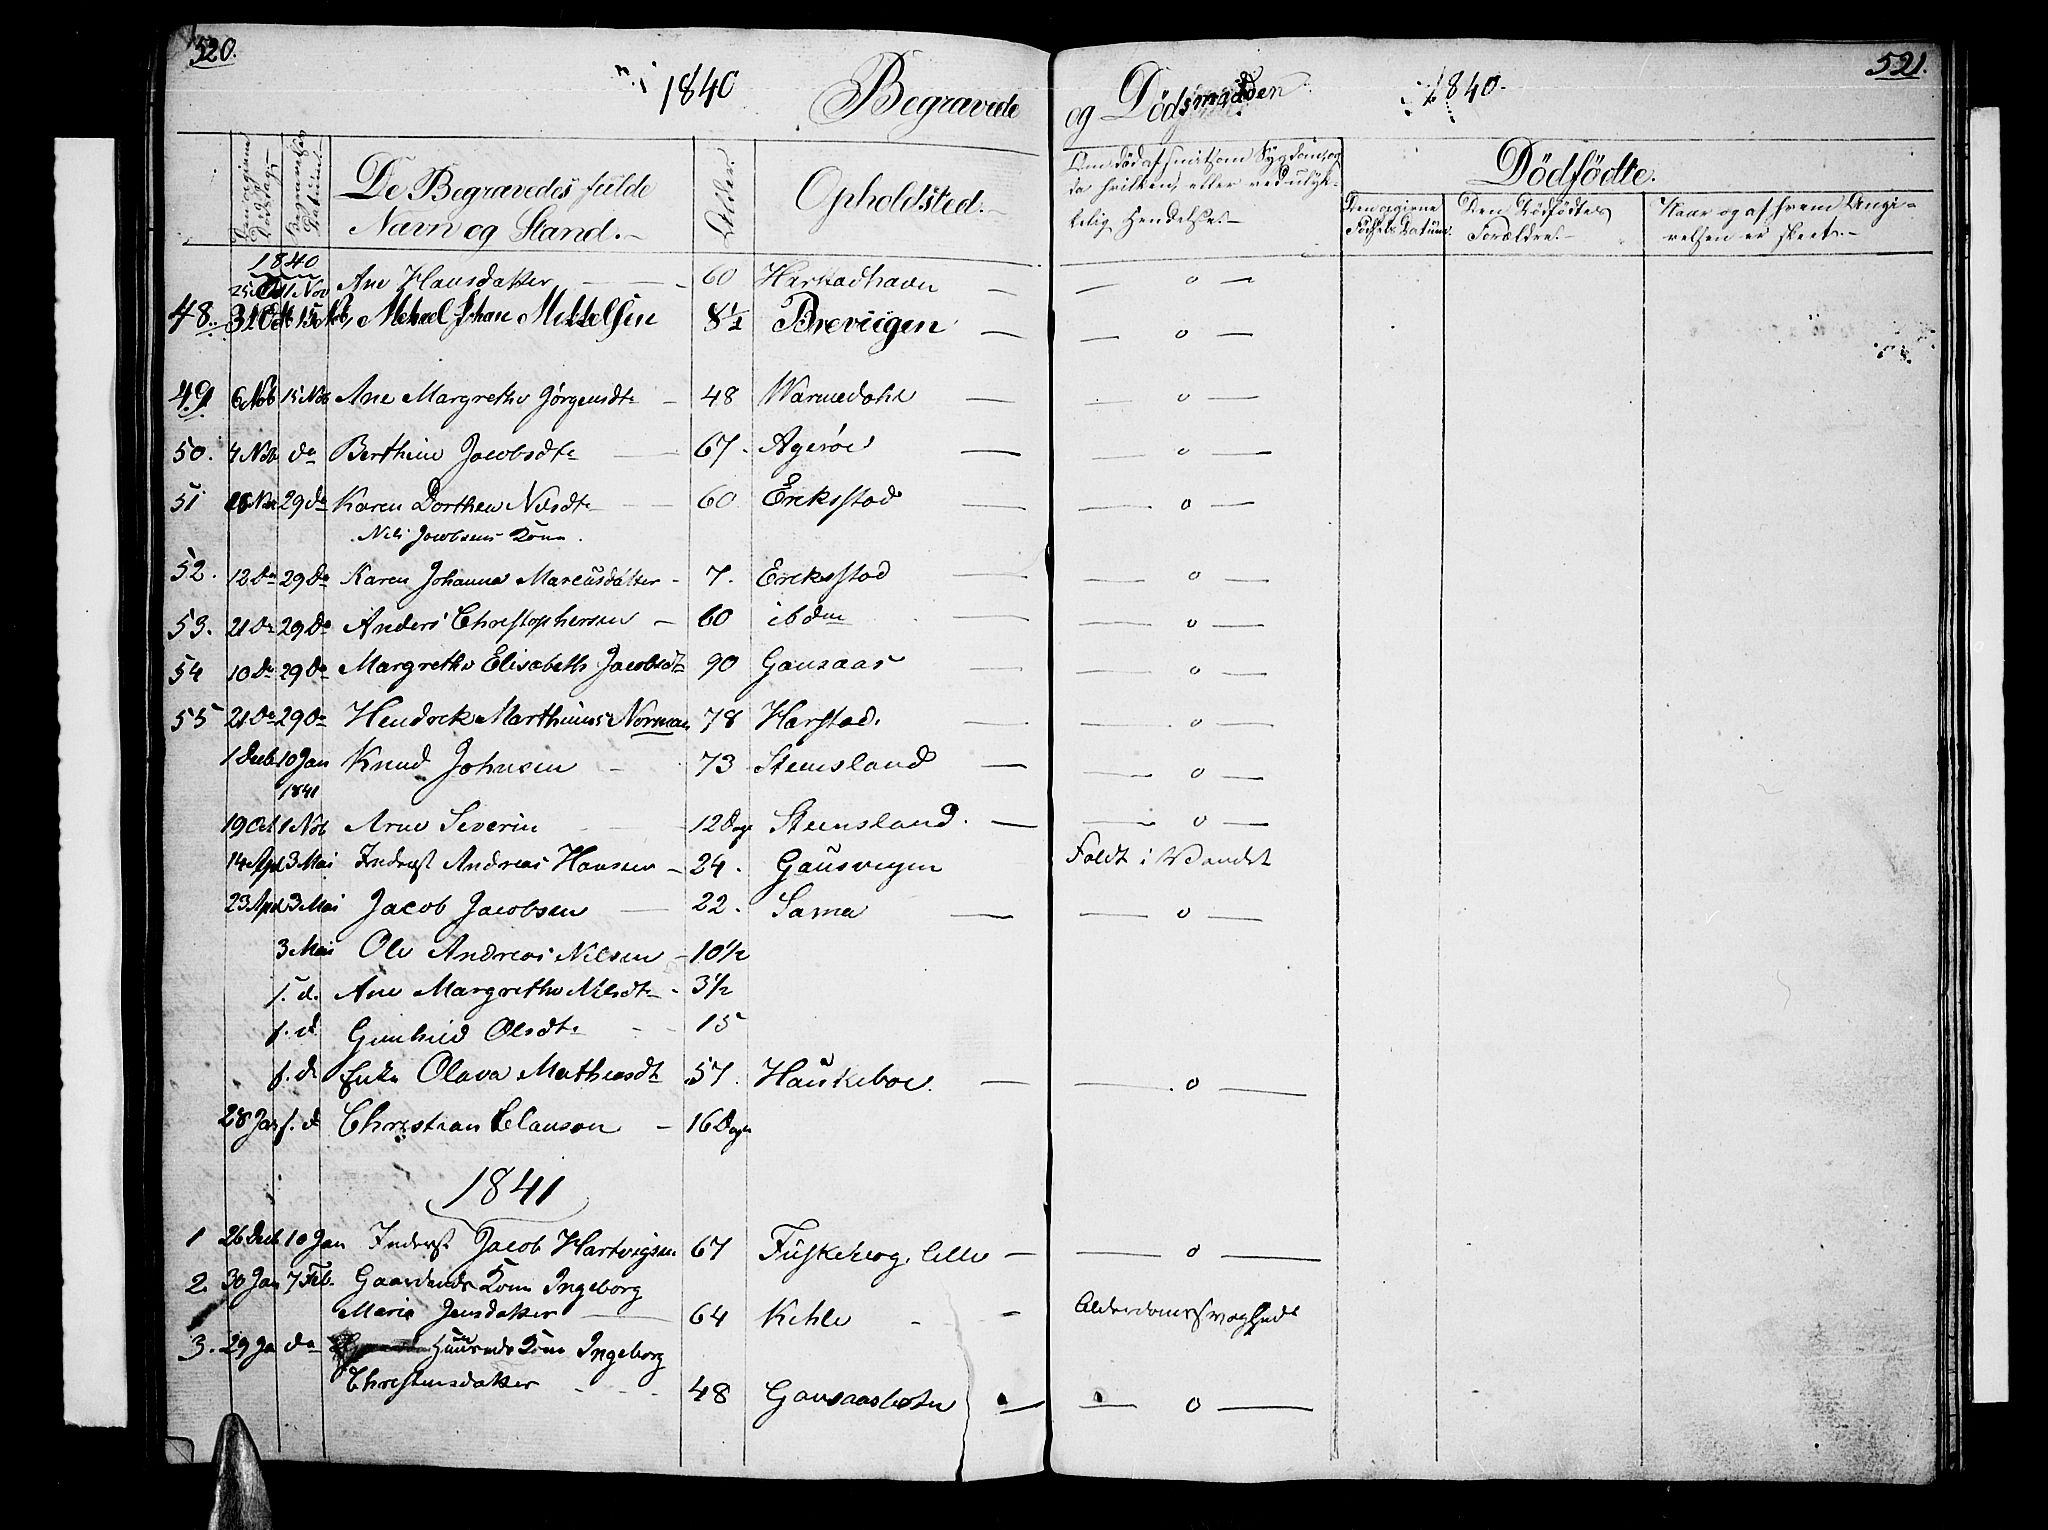 520.
521.
1840 Begravede og Dödsmaaden 1840.
Den opgivne Døds Dag
Begravelses Datum
De Begravedes fulde Navn og Stand.
Alder.
Opholdsted.
Om død af smitsom Sygdom, og da hvilken, eller ved ulykkelig Hendelse.
Dödfödte.
Den opgivne Fødsels Datum.
Den Dødfødtes Forældre.
Naar og af hvem Angivelsen er skeet.
1840
25 Oct 1 Nov Ane Hansdatter 60 Harstadhavn — o —
48. 31 Oct 15 Nob Johan Mikkelsen 8½ Breviigen — o —
49 6 Nob 15 Nob Ane Margrethe Jørgensdt 48 Warmedahl — o —
50. 4 Nob do Berthine Jacobsdtr 67. Ageröe — o —
51 29 do Karen Dorthea Nilsdtr 60 Eriksstad — o —
Nils Jacobsens Kone.
52. 12 Do 29 Do Karen Johanna Marcusdatter 7. Eriksstad — o —
53. 21 Do 29 Do Anders Christophersen 60 ibdm — o —
54 10 Do 29 Do Margrethe Elisabeth Jacobsdtr 90 Gansaas — o —
55 21 Do 29 Do Hendrik Marthinus Norman 78 Harstad. — o —
1 Decb 10 Jan Knud Johnsen 73 Steensland — o —
1841
19 Oct 1 Nob Arne Severin 12 Dage Steensland. — o —
14 Apl 3 Mai Inderst Andreas Hansen 24. Gausvigen Faldt i Vandet
23 Apl 3 Mai Jacob Jacobsen 22. Sama — o —
3 Mai Ole Andreas Nilsen 10½
f. d. Ane Margrethe Nilsdtr 3½
f. d Gunhild Olsdtr 15
f. d. Enke Olava Mathiasdtr 57. Haukeboe. — o —
28 Jan f. d Christian Clauson 16 Dage
1841
1 26 Decb 10 Jan Inderst Jacob Hartvigsen 67 Fuskeberg, lille — o —
2. 30 Jan 7 Feb. Gaardmds Kone Ingeborg
Marie Jensdatter 64 Kihle Alderdomssvaghed
3. 29 Ja do Huusmds Kone Ingeborg
Christensdatter 48 Gansaasbotn — o —